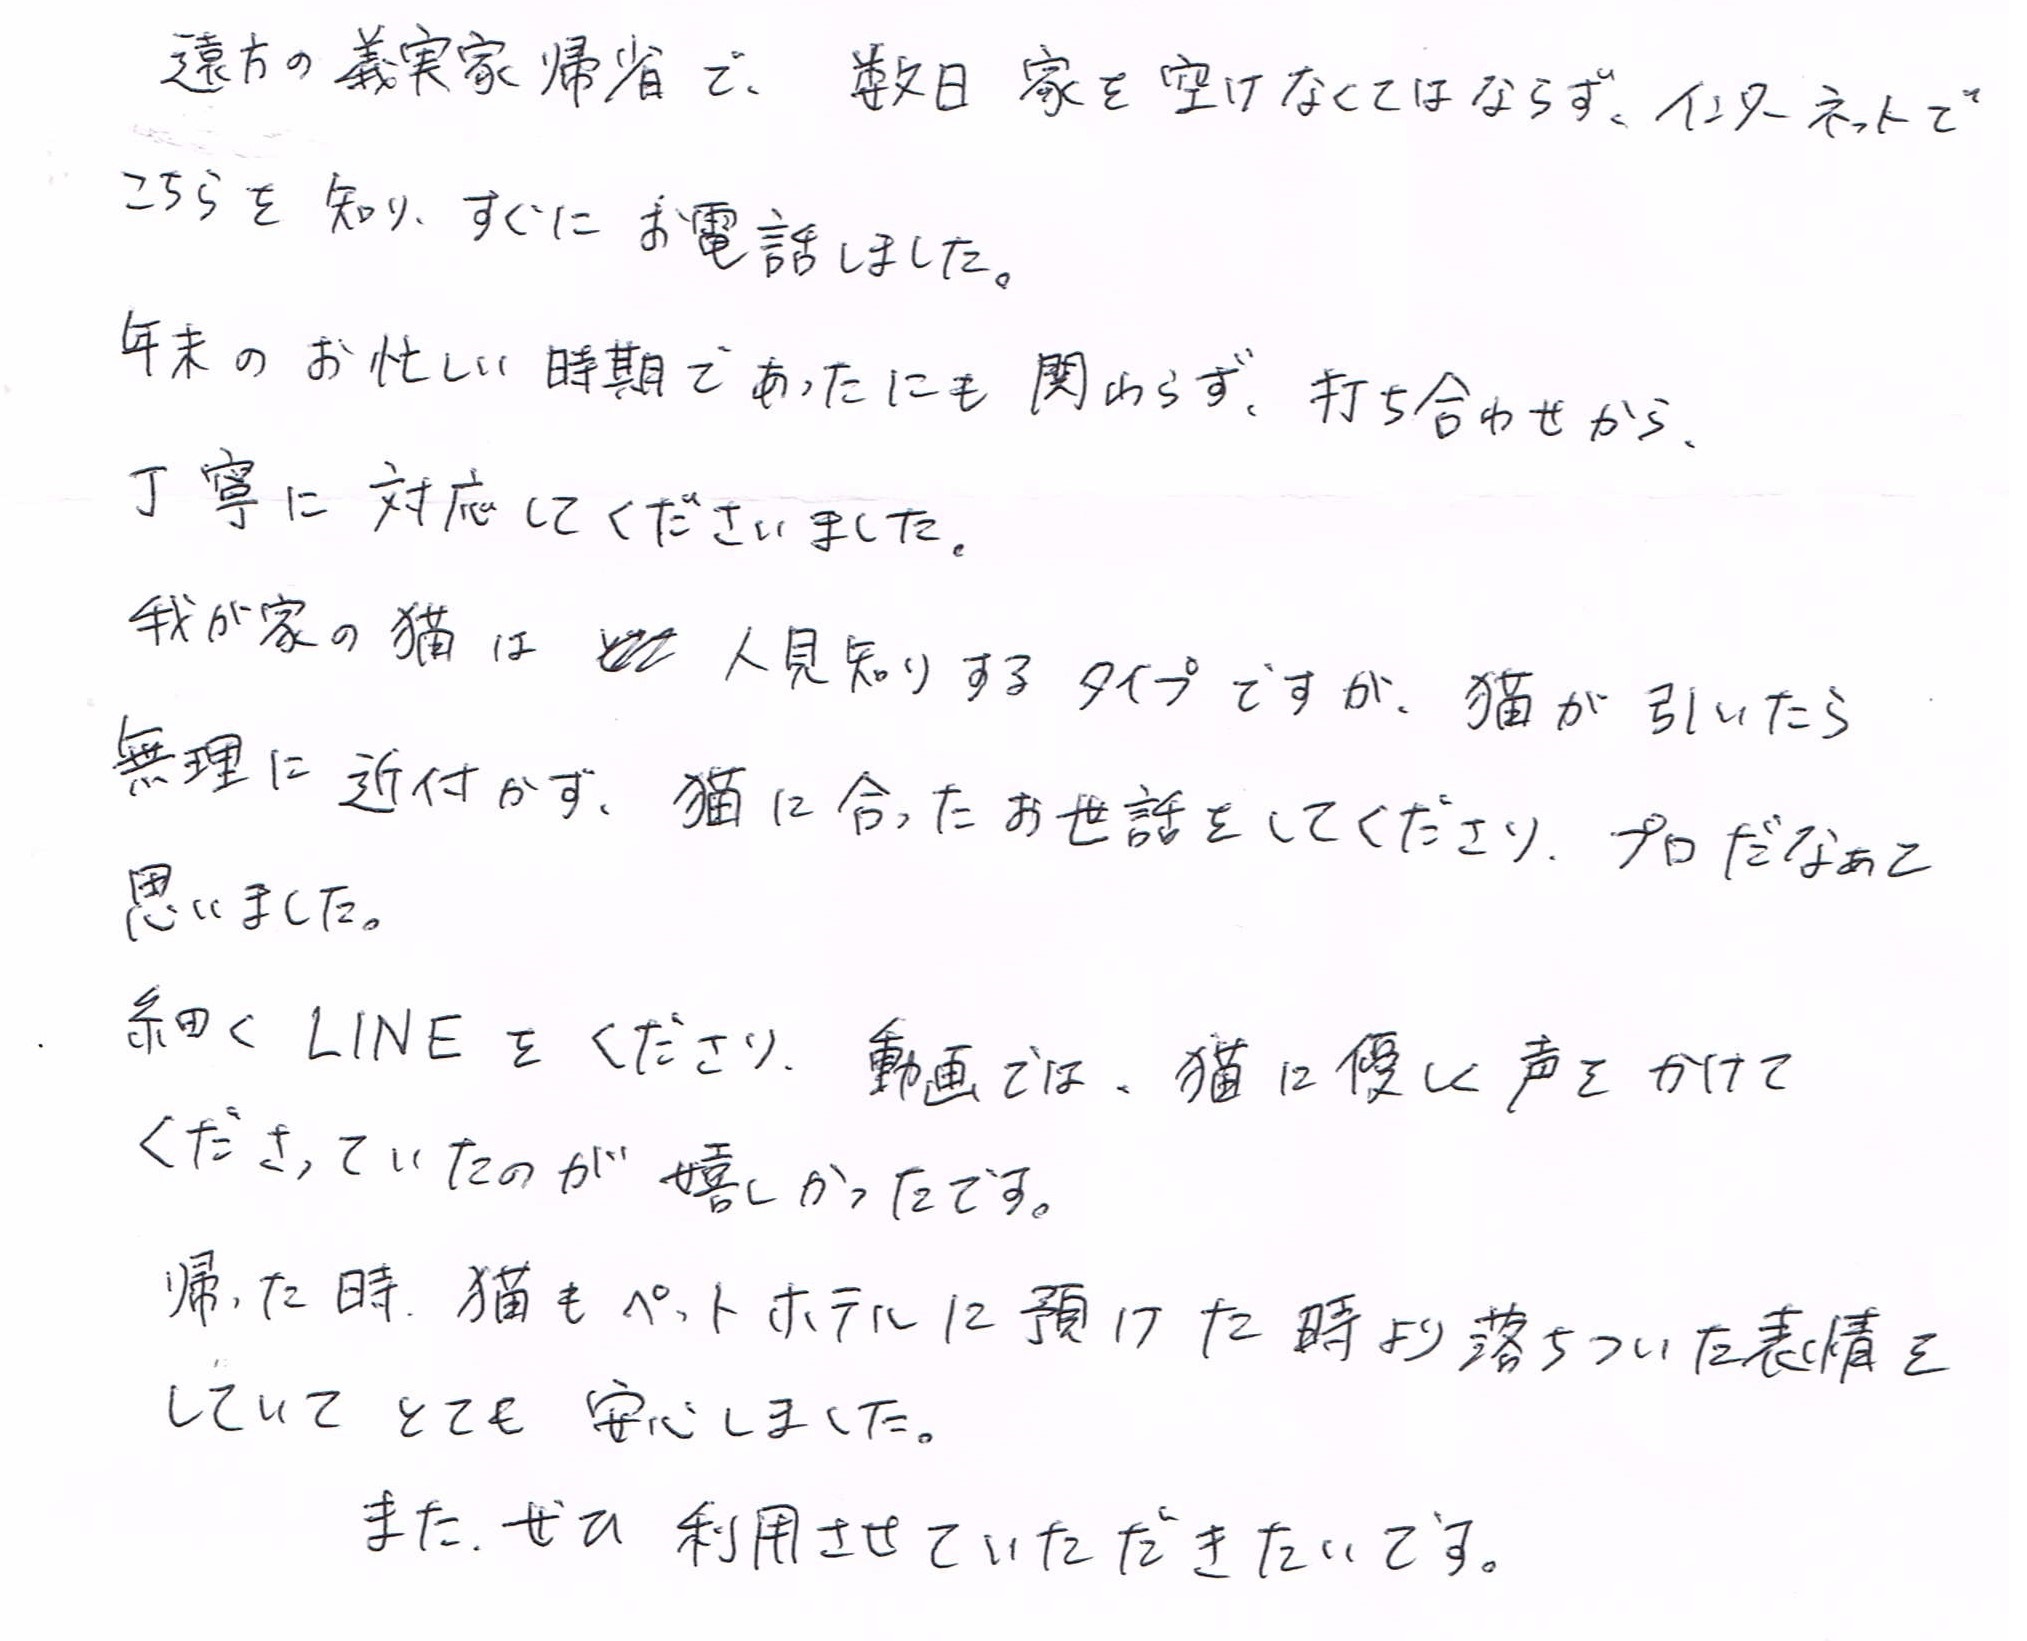 遠方の義実家帰省で、数日家を空けなくてはならず、インターネットで
こちらを知り、すぐにお電話しました。
年末のお忙しい時期であったにも関わらず、打ち合わせから、
丁寧に対応してくださいました。
我が家の猫は人見知りするタイプですが、猫が引いたら
無理に近付かず、猫に合ったお世話をしてくださり、プロだなぁと
思いました。
細くLINEをくださり、動画では、猫に優しく声をかけて
くださっていたのが嬉しかったです。
帰った時、猫もペットホテルに預けた時より落ちついた表情を
していてとても安心しました。
また、ぜひ利用させていただきたいです。